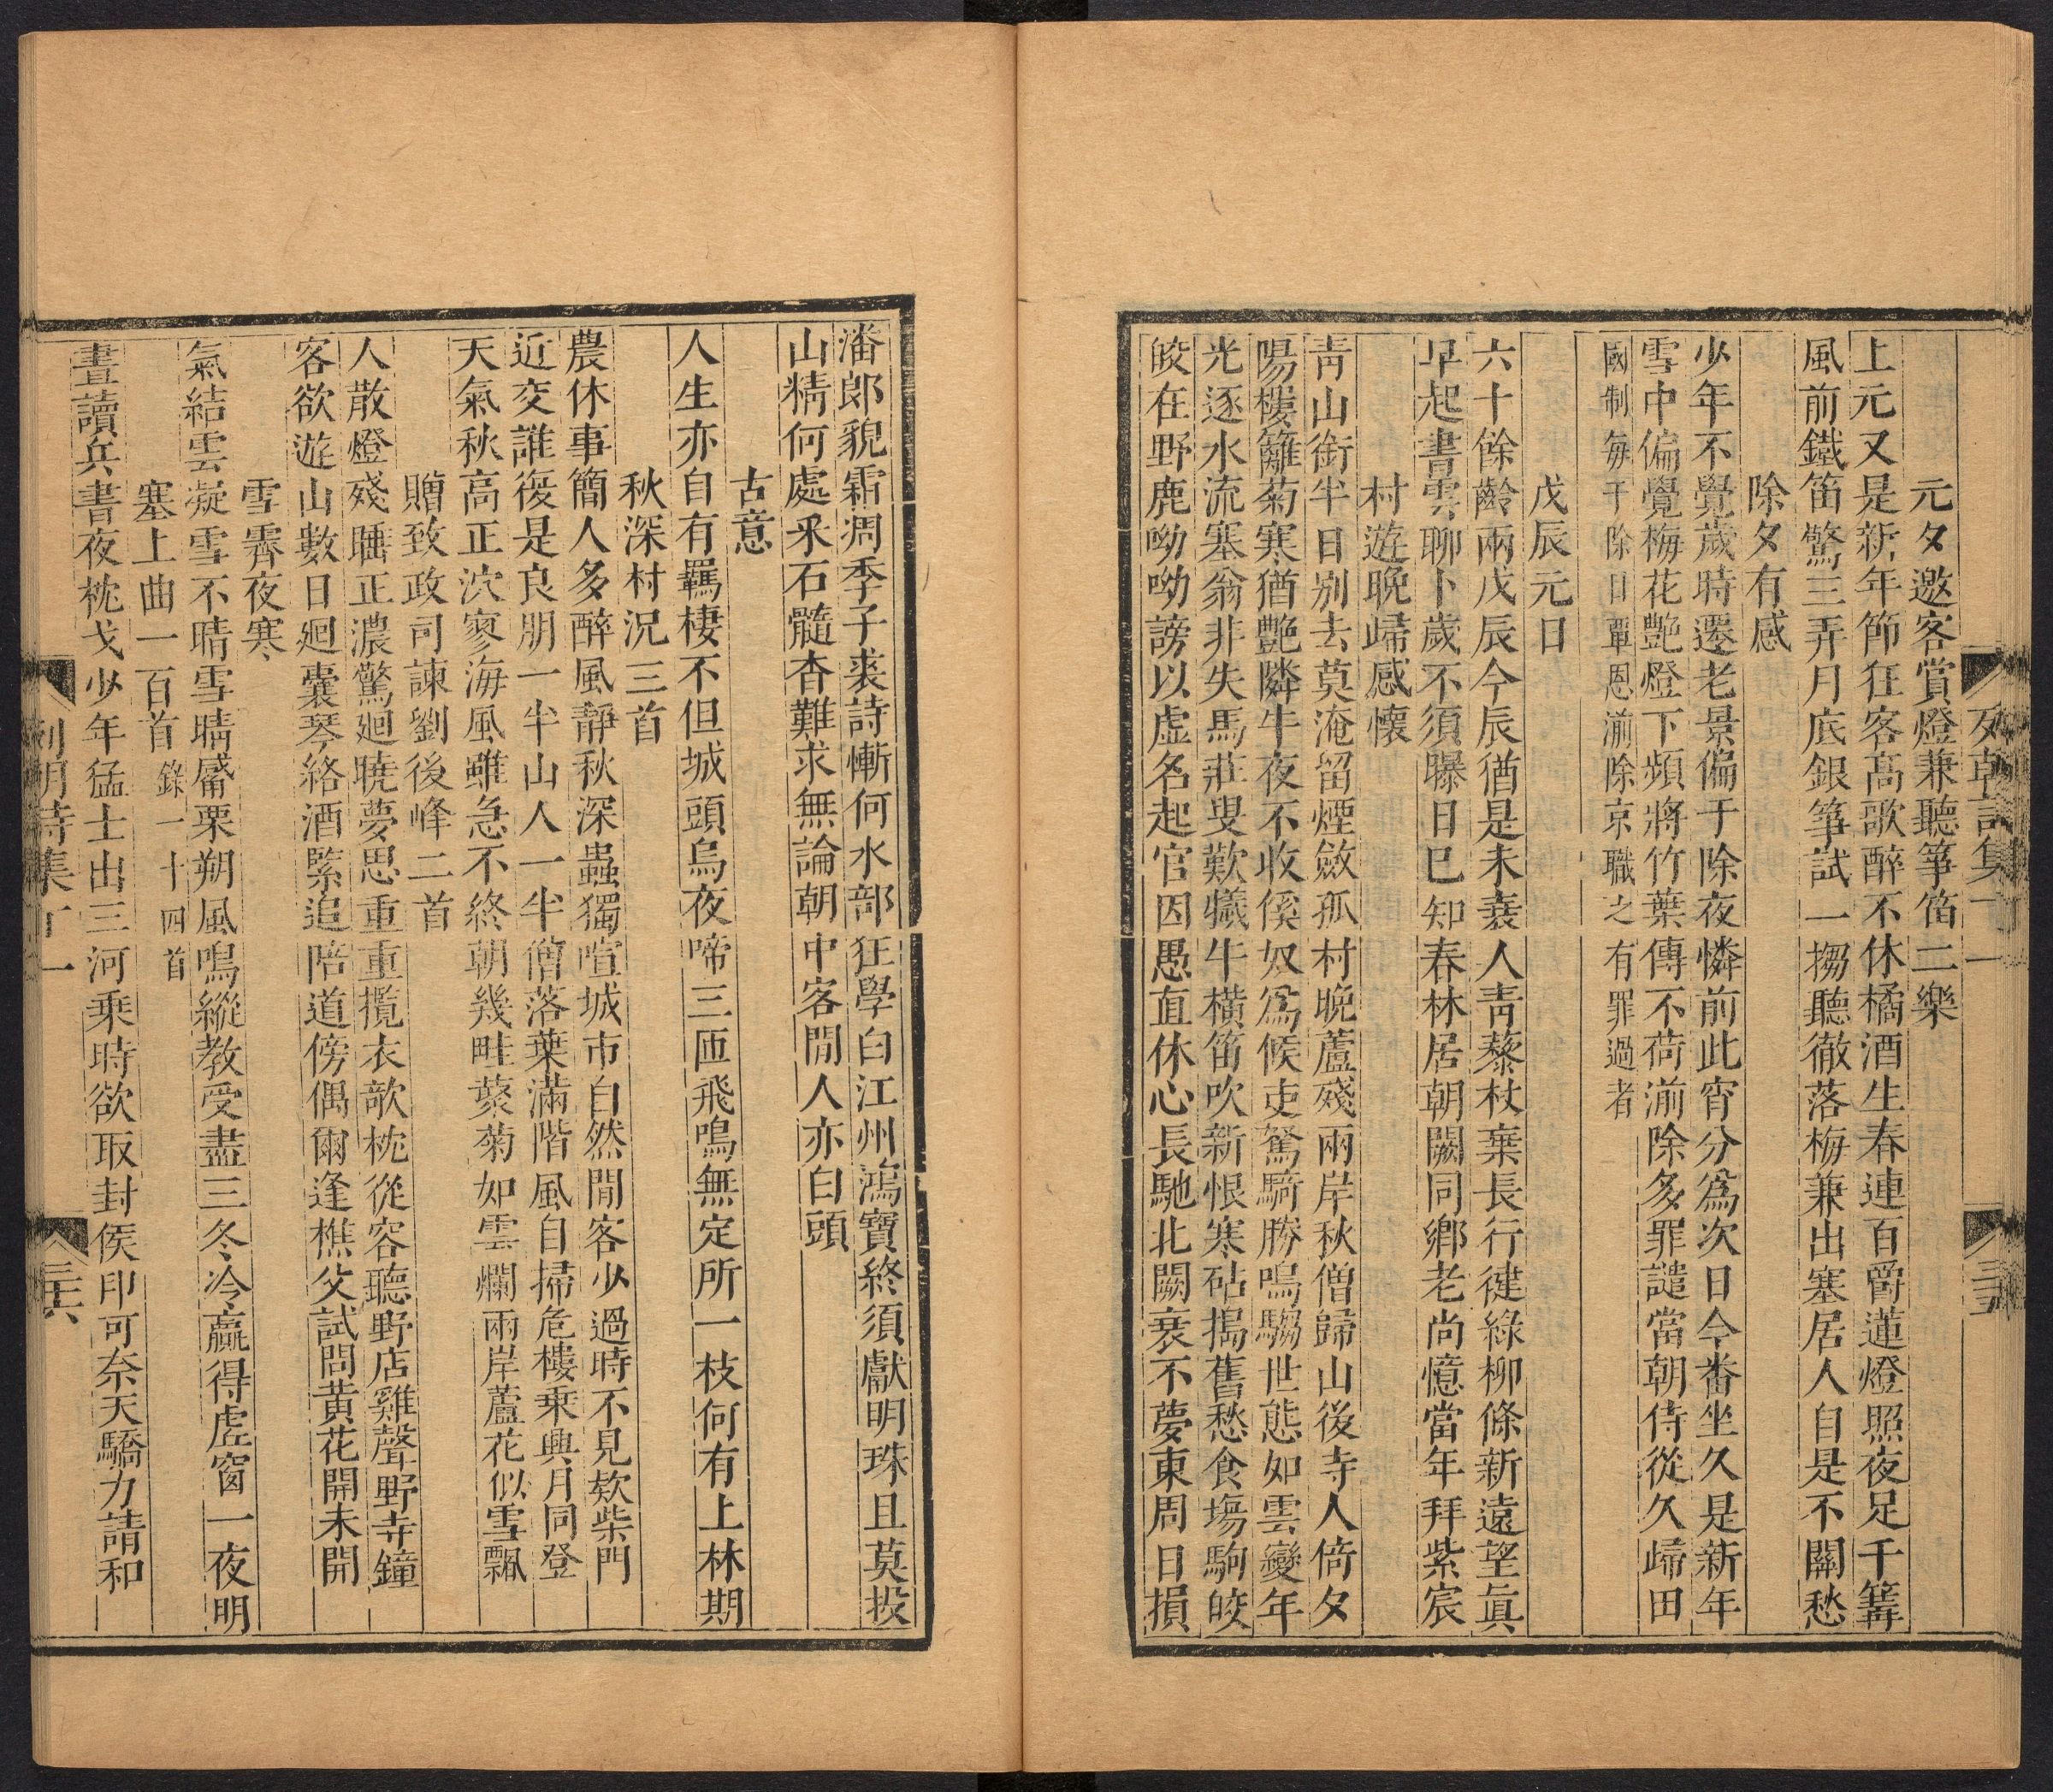 元夕邀客賞燈兼聽箏笛二樂
上元又是新年節狂客高歌醉不休橘酒生春連百爵蓮燈照夜足千篝
風前鐵笛驚三弄月底銀箏試一搊聽徹落梅兼出塞居人自是不關愁
除夕有感
少年不覺歲時遷老景偏于除夜憐前此宵分爲次日今番坐久是新年
雪中偏覺梅花艷燈下頻將竹葉傳不荷湔除多罪譴當朝侍從久歸田
國制每于除日覃恩湔除京職之有罪過者
戊辰元日
六十餘齡兩戊辰今辰猶是未衰人青藜杖棄長行健綠柳條新遠望眞
早起書雲聊卜歲不須曝日已知春林居朝闕同鄉老尚憶當年拜紫宸
村遊晩歸感懷
靑山銜半日别去莫淹留煙斂孤村晩蘆殘兩岸秋僧歸山後寺人倚夕
陽樓籬菊寒猶艷隣牛夜不收傒奴爲候吏駑騎勝鳴騶世態如雲變年
光逐水流塞翁非失馬莊叟歎犧牛橫笛吹新恨寒砧搗舊愁食塲駒皎
皎在野鹿呦呦謗以虛名起官因愚直休心長馳北闕衰不夢東周日損
潘郎貌霜凋季子裘詩慚何水部狂學白江州鴻寶終須獻明珠且莫投
山精何處釆石髓杳難求無論朝中客閒人亦白頭
古意
人生亦自有羈棲不但城頭烏夜啼三匝飛鳴無定所一枝何有上林期
秋深村況三首
農休事簡人多醉風靜秋深蟲獨喧城市自然閒客少過時不見欸柴門
近交誰復是良朋一半山人一半僧落葉滿階風自掃危樓乗興月同登
天氣秋高正泬寥海風雖急不終朝幾畦蔾菊如雲爛兩岸蘆花似雪飄
贈致政司諫劉後峰二首
人散燈殘睡正濃驚廻曉夢思重重攬衣歌枕從容聽野店雞聲野寺鐘
客欲遊山數日廻囊琴絡酒緊追陪道傍偶爾逢樵父試問黃花開未開
雪霽夜寒
氣結雲凝雪不晴雪晴觱栗朔風鳴縱教受盡三冬冷贏得虛窗一夜明
塞上曲一百首 錄一十四首
晝讀兵書夜枕戈少年猛士出三河乗時欲取封侯印可奈天驕力請和
列朝詩集丁一 三六